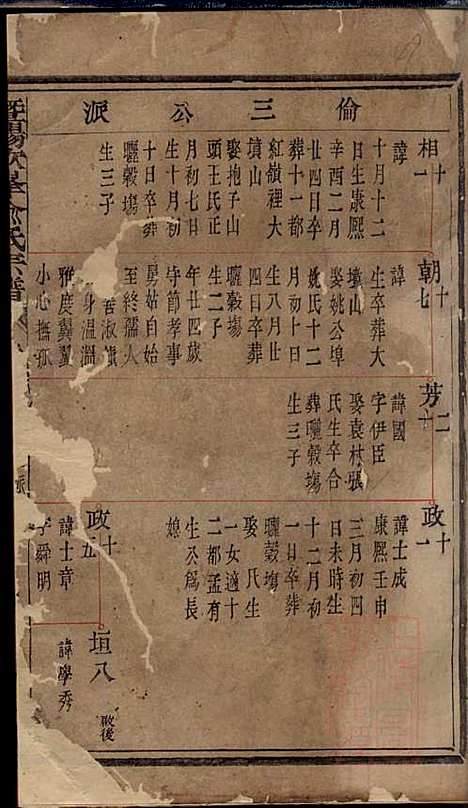 倫三公派
相十一
諱
十月十二
日生康熙
辛酉二月
廿四日卒
葬十一都
紅嶺裡大
墳山
娶抱子山
頭王氏正
月初七日
生十月初
十日卒葬
曬穀塲
生三子
朝十七
諱
生卒葬大
墳山
娶姚公埠
姚氏十二
月初十日
生八月廿
四日卒葬
曬穀塲
生二子
年廿四歲
守節孝事
舅姑自始
至終孺人
善淑慎
身温淵
雅度翼翼
小心撫孤
芳十二
諱國
字伊臣
娶袁村張
氏生卒合
葬曬穀塲
生三子
政十一
諱士成
康熙壬申
三月初四
日未時生
十二月初
一日卒葬
曬穀塲
娶氏生
一女適十
二都孟有
生公爲長
媳
政十五
諱士章
字舜明
垣八
諱學秀
啟後